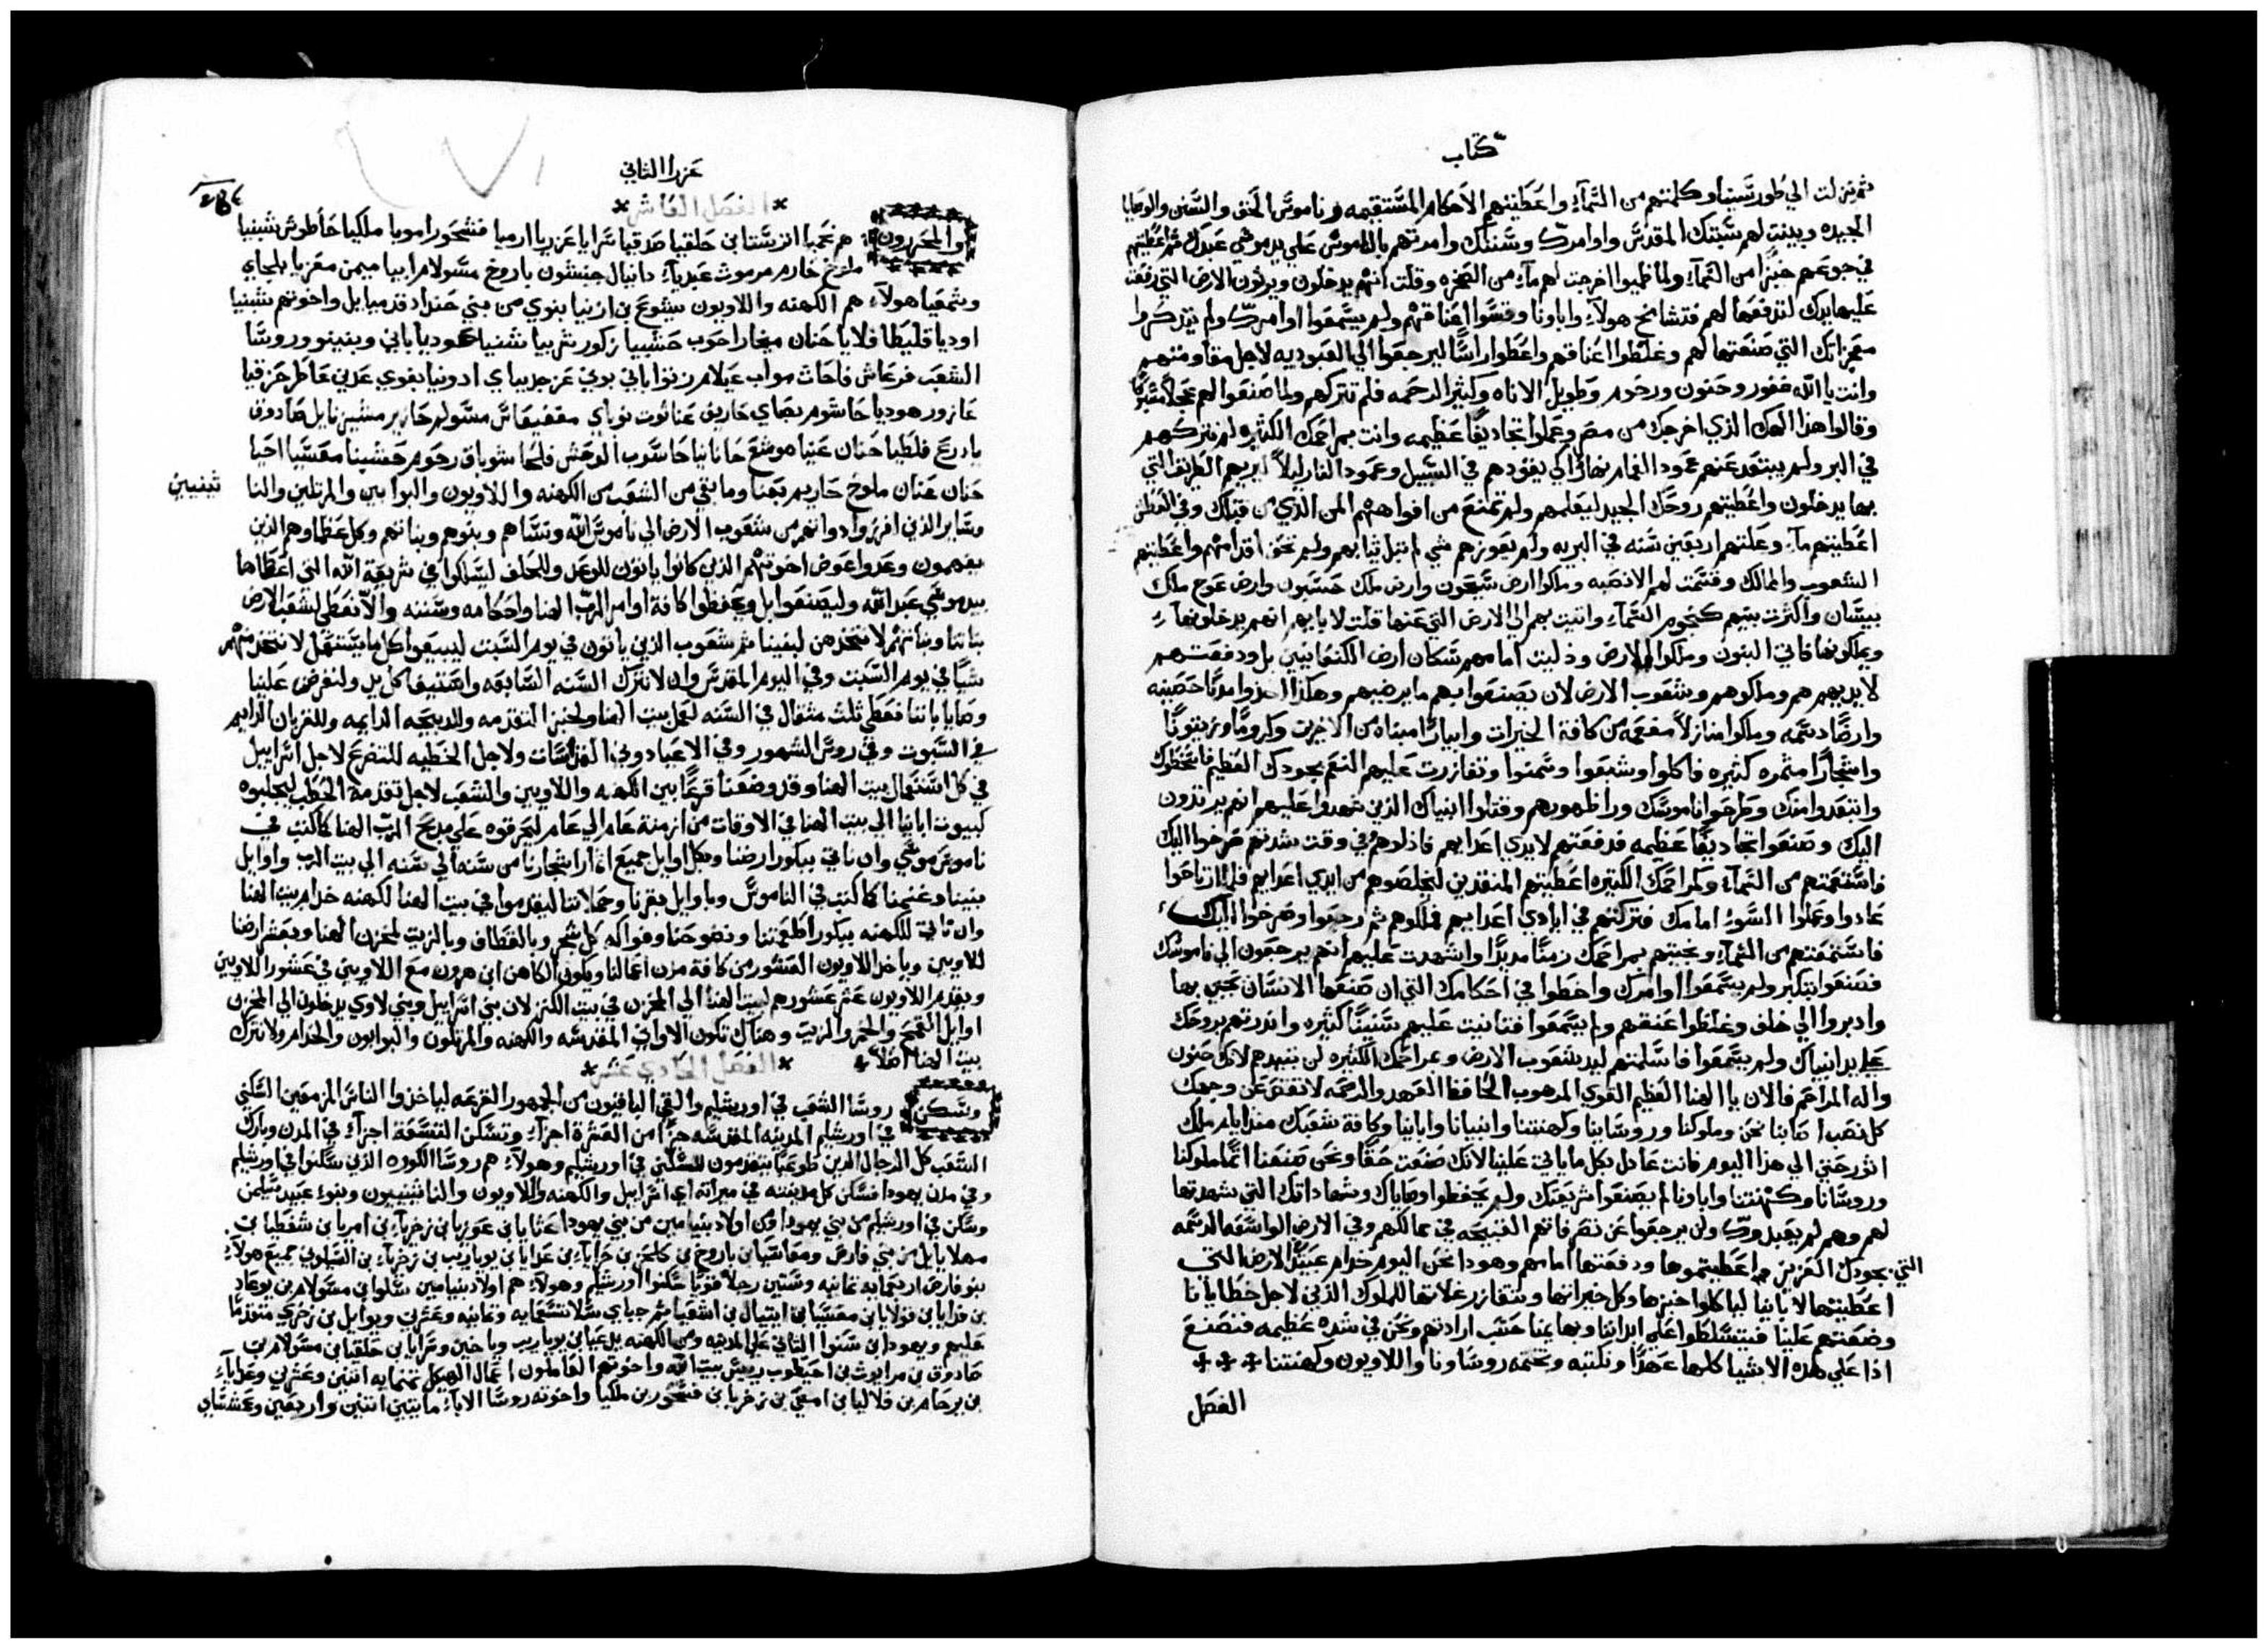 كتاب
ثم نزلت الي طور سينا وكلمتهم من السماء واعطيتهم الاحكام المستقيمه وناموس الحق والسنن والوصايا
الجيده وبينت لهم سبتك المقدس واوامرك وسننك وامرتهم بالناموس علي يد موسي عبدك ثم اعطيتهم
في جوعهم خبزا من السماء ولما ظميوا اخرجت لهم ماء من الصخره وقلت انهم يدخلون ويرثون الارض التي رفعت
عليها يدك لتدفعها لهم فتشامخ هولاء واباونا وقسوا اعناقهم ولم يسمعوا اوامرك ولم يتذكروا
معجزاتك التي صنعتها لهم وغلظوا اعناقهم واعطوا راسا ليرجعوا الي العبوديه لاجل مقاومتهم
وانت يا الله غفور وحنون ورحوم وطويل الاناه وكثير الرحمه فلم تتركهم ولما صنعوا لهم عجلا
وقالوا هذا الهك الذي اخرجك من مصر وعملوا تجاديفا عظيمه وانت بمراحمك الكثيره لم تتركهم
في البر ولم يبتعد عنهم عمود الغمام نهارا لكي يقودهم في السبيل وعمود النار ليلا ليريهم الطريق التي
بها يدخلون واعطيتهم روحك الجيد ليعلمهم ولم تمنع من افواههم المن الذي من قبلك وفي العطش
اعطيتهم ماء وعلتهم اربعين سنه في البريه ولم يعوزهم شي لم تبل ثيابهم ولم تحف اقدامهم واعطيتهم
الشعوب والممالك وقسمت لهم الانصبه وملكوا ارض سيحون وارض ملك حسبون وارض عوج ملك
بيسان واكثرت بنيهم كنجوم السماء واتيت بهم الي الارض التي عنها قلت لابايهم انهم يدخلونها
ويملكونها فاتي البنون وملكوا الارض وذليت امامهم سكان ارض الكنعانيين بل ودفعتهم
لايديهم هم وملوكهم وشعوب الارض لان يصنعوا بهم ما يرضيهم وهكذا اخذوا مدنا حصينه
وارضا دسمه وملكوا منازلا مفعمه من كافة الخيرات وابيارا مبناه من الاخرين وكروما وزيتونا
واشجارا مثمره كثيره فاكلوا وشبعوا وسمنوا وتغازرت عليهم النعم بجودك العظيم فاسخطوك
وابتعدوا منك وطرحوا ناموسك ورا ظهورهم وقتلوا انبياك الذين شهدوا عليهم انهم يرتدون
اليك وصنعوا تجاديفا عظيمه فدفعتهم لايدي اعدايهم فاذلوهم وفي وقت شدتهم صرخوا اليك
فاستمعتهم من السماء وكمراحمك الكثيره اعطيتهم المنقذين ليخلصوهم من ايدي اعدايهم فلما ارتاحوا
عادوا وعملوا السوء امامك فتركتهم في ايادي اعدايهم فملكوهم ثم رجعوا وصرخوا اليك
فاستمعتهم من السماء ونجيتهم بمراحمك زمنا مديدا واشهدت عليهم انهم يرجعون الي ناموسك
فصنعوا بتكبر ولم يسمعوا اوامرك واخطوا في احكامك التي ان صنعها الانسان يحيي بها
وادبروا الي خلف وغلظوا عنقهم ولم يسمعوا فتانيت عليهم سنينا كثيره وانذرتهم بروحك
علي يد انبياك ولم يسمعوا فاسلمتهم ليد شعوب الارض وبمراحمك الكثيره لن تبيدهم لانك حنون
واله المراحم فالان يا الهنا العظيم القوي المرهوب الحافظ العهد والرحمه لا تغض عن وجهك
كل نصب اصابنا نحن وملوكنا وروسانا وكهنتنا وانبيانا وابانا وكافة شعبك منذ ايام ملك
اثور حتي الي هذا اليوم فانت عادل بكل ما ياتي علينا لانك صنعت حقا ونحن صنعنا اثما ملوكنا
وروسانا وكهنتنا واباونا لم يصنعوا شريعتك ولم يحفظوا وصاياك وشهاداتك التي شهدتها
لهم وهم لم يعبدوك ولن يرجعوا عن نصرفاتهم القبيحه في ممالكهم وفي الارض الواسعه الدسمه
التي بجودك الغزيز اعطيتموها ودفعتها امامهم وهوذا نحن اليوم خدام عبيد الارض التي
اعطيتها لابانيا لياكلوا خبزها وكل خيراتها وتتغازر غلاتها للملوك الذين لاجل خطايانا
وضعتهم علينا فيتسلطوا علي ابداننا وبهايمنا حسب ارادتهم ونحن في شده عظيمه فنصنع
اذا علي هذه الاشيا كلها عهدا ونكتبه وتختمه روساونا واللاويون وكهنتنا
الفصل
عزرا الثاني
الفصل العاشر
والمحررون هم نحميا اترستا بن حلقيا صدقيا سرايا عزريا ارميا فشحور امريا ملكيا حاطوش شبنيا
ملوخ حارم مرموث عبديا دانيال جنثون باروخ مسولام ابيا ميمن معزيا بلجاي
وشمعيا هولاء هم الكهنه واللاويون يشوع بن ازنيا بنوي من بني حنداد قدميايل واخوتهم شبنيا
اوديا قليطا فلايا حنان ميخا راحوب حشبيا زكور شربيا شبنيا هوديا باني وبنينو وروسا
الشعب فرعاش فاحاث مواب عيلام زتوا باني بوني عزجد بيباي ادونيا بغوي عدين عاطر حزقيا
عازور هوديا حاشوم بصاي حاريف عناثوت نوباي مغفيعاش مسولم حازير مشيزبايل صادوق
يادوع فلطيا حنان عنيا هوشع حنانيا حاسوب الوحش فلحا شوباق رحوم حشبنا معسيا احيا
حنان عنان ملوخ حاريم بعنا وما بقي من الشعب من الكهنه واللاويون والبوابين والمرتلين والنا
ثينيين
وساير الذين افرزوا ذواتهم من شعوب الارض الي ناموس الله ونساهم وبنوهم وبناتهم وكل عظماوهم الذين
يفهمون وعدوا عوض اخوتهم الذين كانوا ياتون للوعد وللحلف ليسلكوا في شريعة الله التي اعطاها
بيد موسي عبد الله وليصنعوا بل ويحفظوا كافة اوامر الرب الهنا واحكامه وسننه والا نعطي لشعب الارض
بناتنا وبناتهم لا نتخذهن لبنينا ثم شعوب الذين ياتون في يوم السبت ليبيعوا كل ما يستهل لا نتخذ منهم
شيا في يوم السبت وفي اليوم المقدس وان لا نترك السنه السابعه واستيفا كل يد ولنفرض علينا
وصايا باننا نعطي ثلث مثقال في السنه لعمل بيت الهنا ولخبز التقدمه وللدبيحه الدايمه وللقربان الدايم
في السبوت وفي روس الشهور وفي الاعياد وفي القداسات ولاجل الخطيه للتضرع لاجل اسراييل
في كل استعمال بيت الهنا وقد وضعنا قرعا بين الكهنه واللاويين والشعب لاجل تقدمة الحطب ليجلبوه
كبيوت ابانيا الي بيت الهنا في الاوقات من ازمنة عام الي عام ليحرقوه علي مدبح الرب الهنا كما كتب في
ناموس موسي وان ناتي ببكور ارضنا وبكل اوايل جميع اثمار اشجارنا من سنه الي سنه الي بيت الرب واوايل
بنينا وغنمنا كما كتب في الناموس وباوايل بقرنا وحملاننا ليقدموا في بيت الهنا لكهنه خدام بيت الهنا
وان ناتي للكهنه ببكور اطعمتنا ونضوحنا وفواكه كل شجر وبالقطاف وبالزيت لمخزن الهنا وبعشر ارضنا
للاويين وياخذ اللاويون العشور من كافة مدن اعمالنا ويكون الكاهن ابن هرون مع اللاويين في عشور اللاويين
ويقدم اللاويون عشر عشورهم لبيت الهنا الي المخزن في بيت الكنز لان بني اسراييل وبني لاوي يدخلون الي المخزن
اوايل القمح والخمر والزيت وهناك تكون الاواني المقدسه والكهنه والمرتلون والبوابون والخدام ولا نترك
بيت الهنا اصلا
الفصل الحادي عشر
وسكن روسا الشعب في اورشليم والتقي الباقيون من الجمهور القرعه لياخذوا الناس المزمعين السكني
في اورشليم المدينه المقدسه جزا من العشرة اجزاء وتسكن التسعة اجزاء في المدن وبارك
الشعب كل الرجال الذين طوعيا يتقدمون للسكني في اورشليم وهولاء هم روسا الكوره الذين سكنوا في اورشليم
وفي مدن يهودا فسكن كل مدينته في ميراثه اي اسراييل والكهنه واللاويون والناثينيون وبنوء عبيد سليمن
وسكن في اورشليم من بني يهودا ومن اولاد بنيامين من بني يهودا عثايا بن عوزيا بن زخريا بن امريا بن شفطيا بن
مهلاييل من بني فارص ومعاسيا بن باروخ بن كلحز بن حزايا بن عدايا بن يوياريب بن زخريا بن السيلوني جميع هولاء
بنو فارص اربعمايه ثمانيه وستين رجلا قويا سكنوا اورشليم وهولاء هم اولاد بنيامين سلوا بن مسولام بن يوعاد
بن فدايا بن قولايا بن معسيا بن ايتيال بن اشعيا ثم جباي سلا تسعمايه وثمانيه وعشرين ويوايل بن زخري متقدما
عليهم ويهودا بن سنوا الثاني علي المدينه ومن الكهنه يدعيا بن يوياريب وياخين وسرايا بن حلقيا بن مسولام بن
صادوق بن مرايوث بن احيطوب رييس بيت الله واخوتهم العاملون اعمال الهيكل ثمنمايه اثنين وعشرين وعدايا
بن يرحام بن فلاليا بن امصي بن زخريا بن فشحور بن ملكيا واخوته روسا الاباء مايتين اثنين واربعين وعمشساي